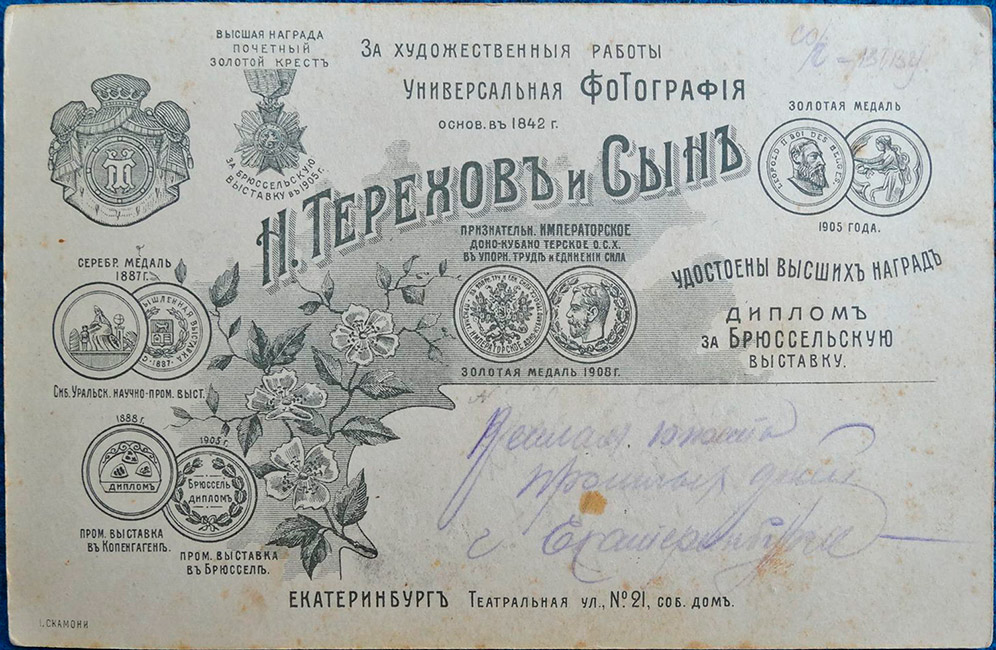 ВЫСШАЯ НАГРАДА
ПОЧЕТНЫЙ
ЗОЛОТОЙ КРЕСТЪ
ЗА БРЮССЕЛЬСКУЮ
ВЫСТАВКУ ВЪ 1905 Г.
ЗА ХУДОЖЕСТВЕННЫЯ РАБОТЫ
УНИВЕРСАЛЬНАЯ ФОТОГРАФІЯ
ОСНОВ. ВЪ 1842 Г.
Н. ТЕРЕХОВЪ И СЫНЪ
ЗОЛОТАЯ МЕДАЛЬ
LEOPOLD II ROI DES BELGES
1905 ГОДА.
СЕРЕБР. МЕДАЛЬ
1887 Г.
1887
СИБ. УРАЛЬСК. НАУЧНО-ПРОМ. ВЫСТ.
ПРИЗНАТЕЛЬН. ИМПЕРАТОРСКОЕ
ДОНО-КУБАНО ТЕРСКОЕ О.С.Х.
ВЪ УПОРН. ТРУДѢ И ЕДИНЕНІИ СИЛА
ЗОЛОТАЯ МЕДАЛЬ 1908 Г.
УДОСТОЕНЫ ВЫСШИХЪ НАГРАДЪ
ДИПЛОМЪ
ЗА БРЮССЕЛЬСКУЮ
ВЫСТАВКУ.
1888 Г.
ДИПЛОМЪ
ПРОМ. ВЫСТАВКА
ВЪ КОПЕНГАГЕНѢ.
1905 Г.
БРЮССЕЛЬ
ДИПЛОМЪ
ПРОМ. ВЫСТАВКА
ВЪ БРЮССЕЛѢ.
с Екатеринбурга
ЕКАТЕРИНБУРГЪ ТЕАТРАЛЬНАЯ УЛ., № 21, СОБ. ДОМЪ.
І. СКАМОНИ